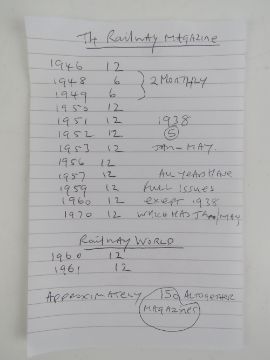 The Railway Magazine
1946 12
1948 6 } 2 Monthly
1949 6
1950 12
1951 12 1938
1952 12 5
1953 12 Jan-May.
1956 12
1957 12 All Years Have
1959 12 Full Issues
1960 12 except 1938
1970 12 which has Jan/May
Railway World
1960 12
1961 12
Approximately 150 altogether
magazines